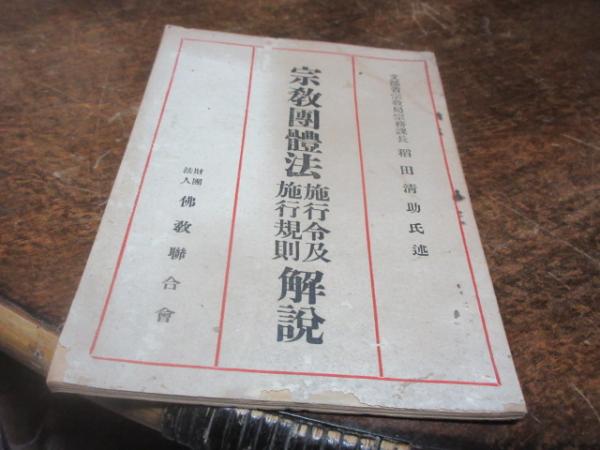 文部省宗教局宗務課長 稻田清助氏述
宗教團體法施行令及施行規則解說
財團法人佛敎聯合會